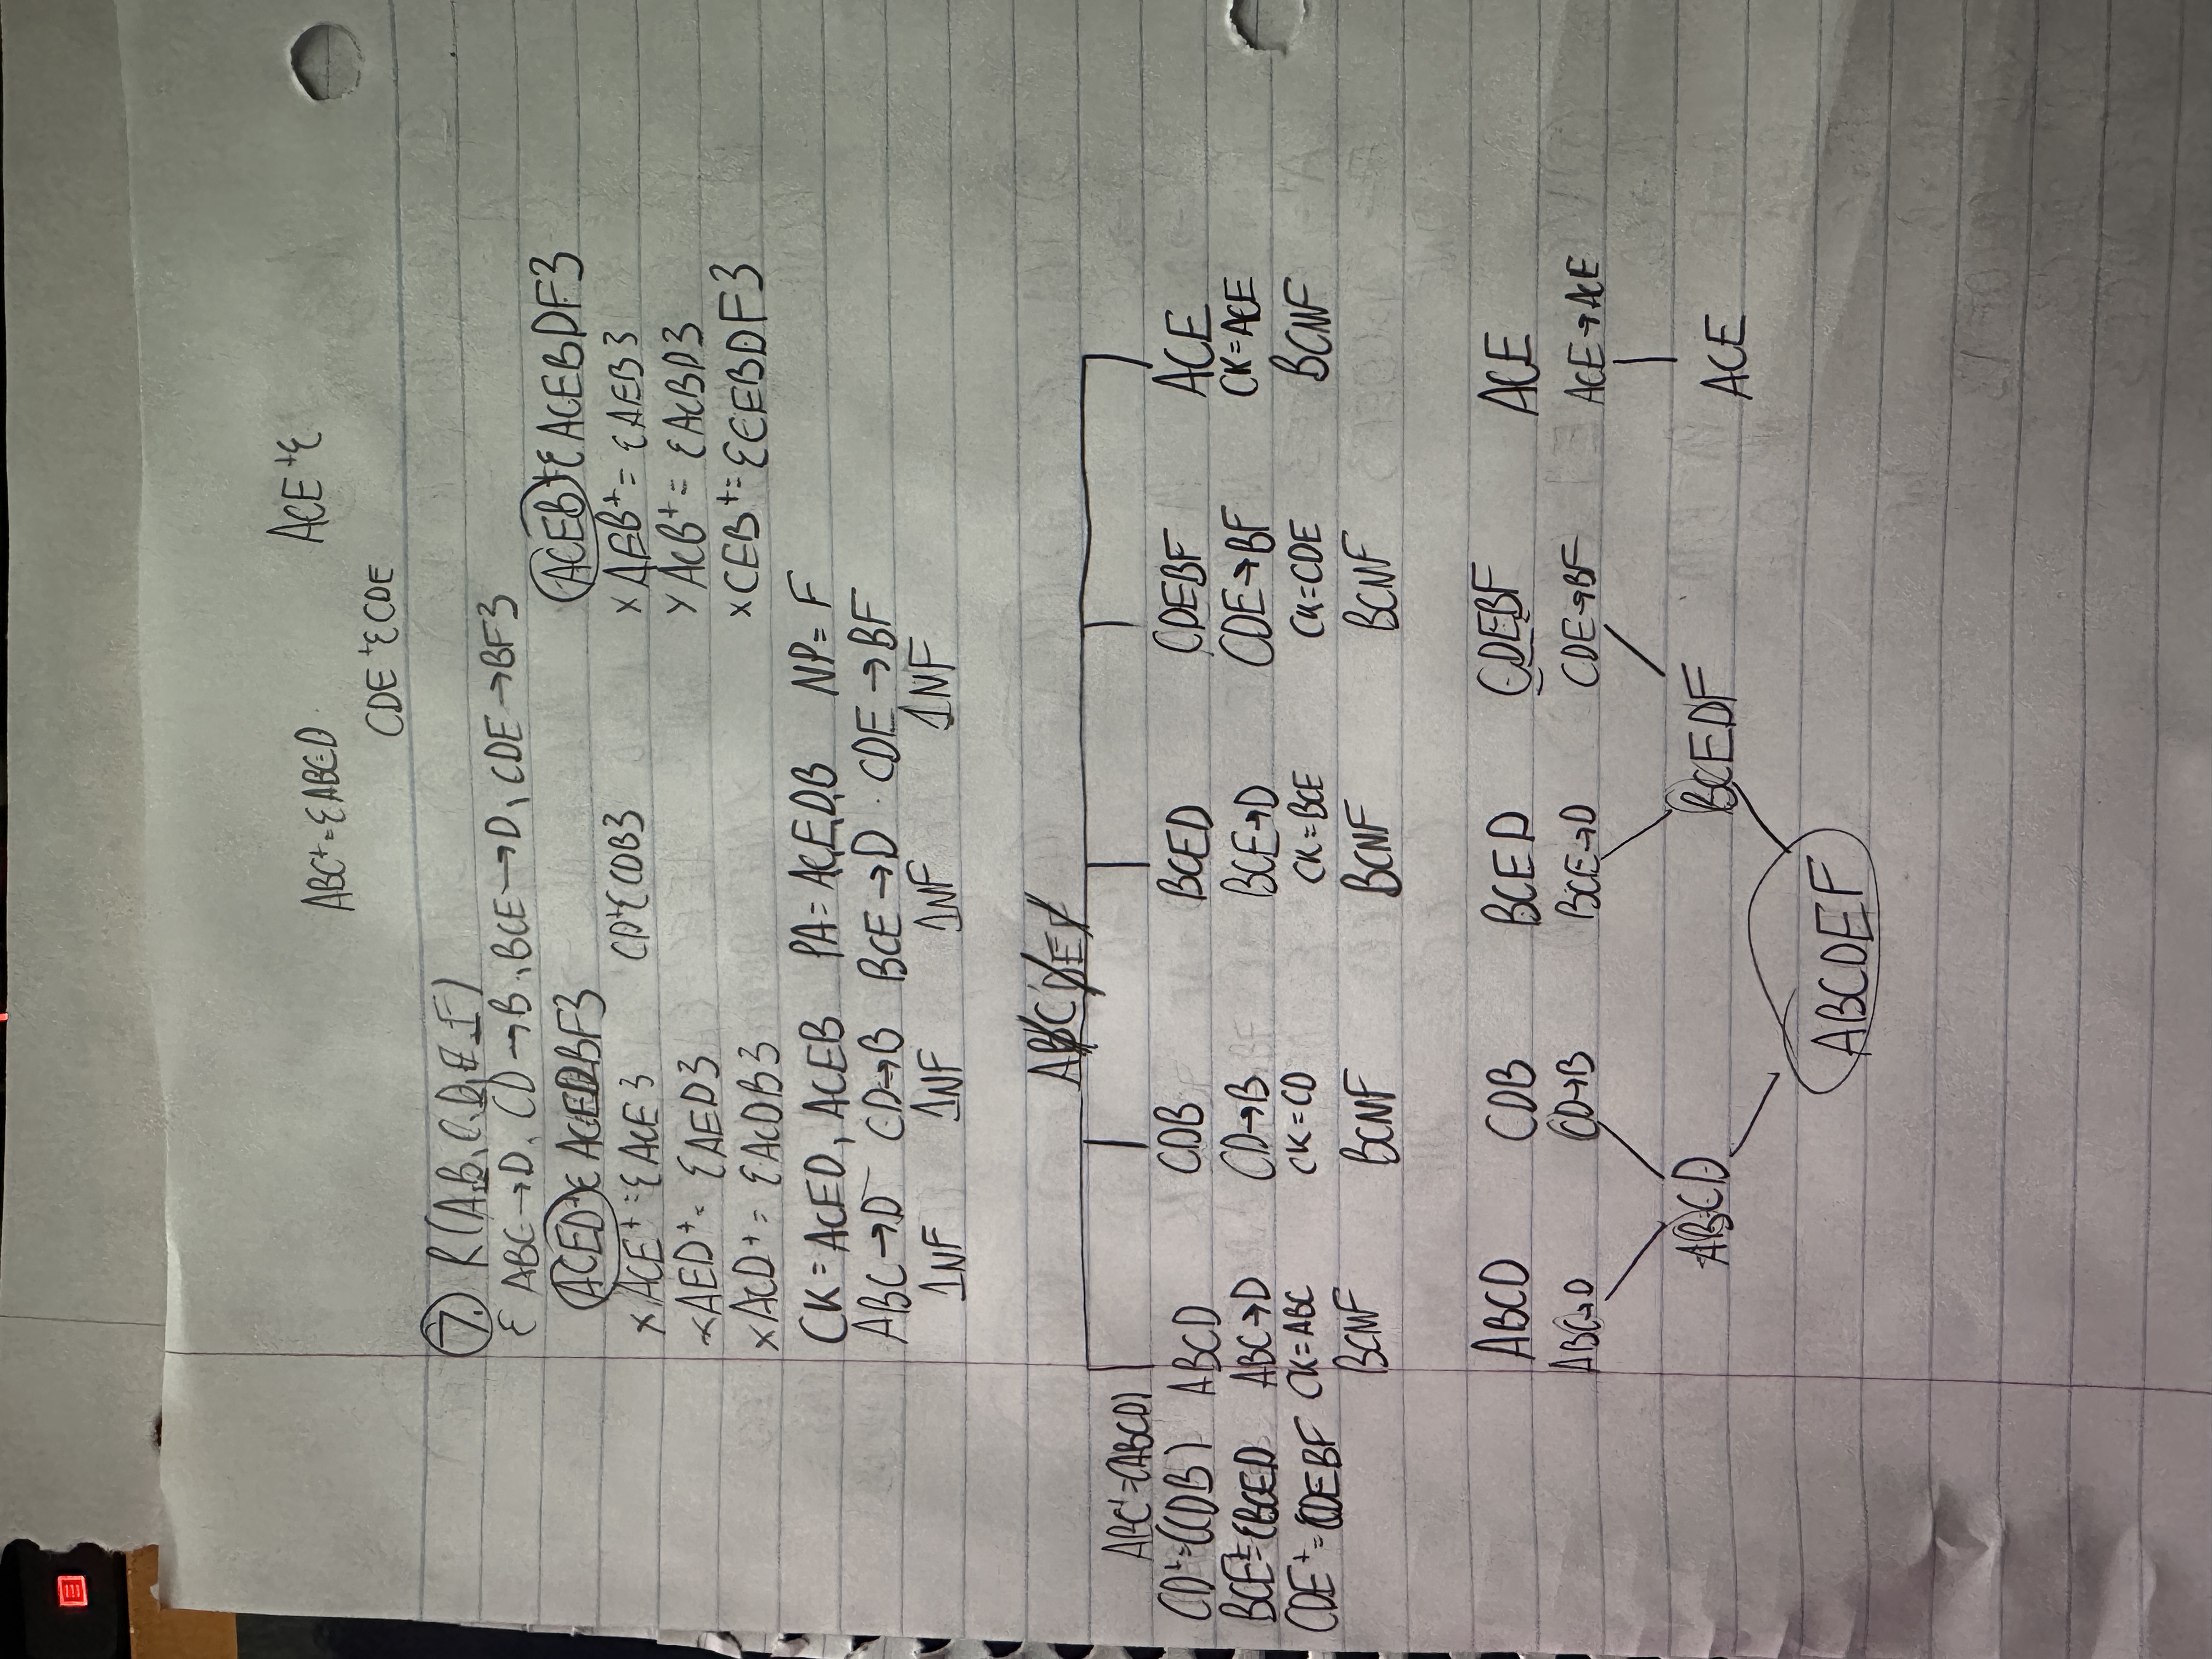 ABC⁺={ABCD
ACE⁺{
CDE⁺{CDE
7. R(A,B,C,D,E,F)
{ ABC→D, CD→B, BCE→D, CDE→BF}
ACED⁺{ACEDBF}
ACEB⁺{ACEBDF}
xACE⁺={ACE}
CD⁺{CDB}
xAEB⁺={AEB}
xAED⁺={AED}
xACB⁺={ACBD}
xACD⁺={ACDB}
xCEB⁺={CEBDF}
CK=ACED, ACEB PA=A,C,E,D,B NP=F
ABC→D CD→B BCE→D CDE→BF
1NF 1NF 1NF 1NF
ABCDEF
ABC⁺=(ABCD)
CD⁺=(CDB) ABCD CDB BCED CDEBF ACE
BCE⁺={BCED ABC→D CD→B BCE→D CDE→BF CK=ACE
CDE⁺=CDEBF CK=ABC CK=CD CK=BCE CK=CDE BCNF
BCNF BCNF BCNF BCNF
ABCD CDB BCED CDEBF ACE
ABC→D CD→B BCE→D CDE→BF ACE→ACE
ABCD BCEDF ACE
ABCDEF